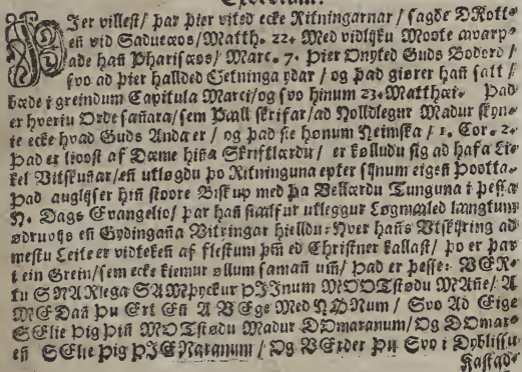 Jer villest/ þar þier vited ecke Ritningarnar/ sagde DRott-
eñ vid Saduceos/ Matth. 22. Med vidlijku Moote avarp-
ade hañ Pharisæos/ Marc. 7. Þier Onyted Guds Bodord/
svo ad þier hallded Setninga ydar/ og þad giører hañ satt/
bæde i greindum Capitula Marci/ og svo hinum 23. Matthæi. Þad
er hveriu Orde sañara/ sem Påll skrifar/ ad Nolldlegur Madur skyn-
ie ecke hvad Guds Anda er/ og þad sie honum Heimska/ 1. Cor. 2.
Þad er lioost af Dæme hiña Skriftlærdu/ er kølludu sig ad hafa Ly-
kel Vitskuñar/ eñ utløgdu po Ritninguna epter sijnum eigeñ Þootta.
Þad auglijser hiñ stoore Biskup med þa Vellærdu Tunguna i þessa
N. Dags Evangelio/ þar hañ siaalfur utleggur Løgmaaled langtum
ødruvijs eñ Gydingaña Vitringar hielldu: Hver hañs Utskijring ad
mestu Leite er vidtekeñ af flestum þm̃ ed Christner kallast/ po er þar
i ein Grein/ sem ecke kiemur øllum samañ um̃/ Þad er þesse: VER-
tu SNARlega SAMþyckur ÞIJnum MOOTstødu Mañe/ A
MEDañ Þu ERt Eñ A VEge Med HONum/ Svo Ad Eige
SElie Þig Þiñ MOTstødu Madur DOmaranum/ Og DOmar-
eñ SElie Þig ÞIENaranum/ Og VErder Þu Svo i Dyblissu
Kastad.